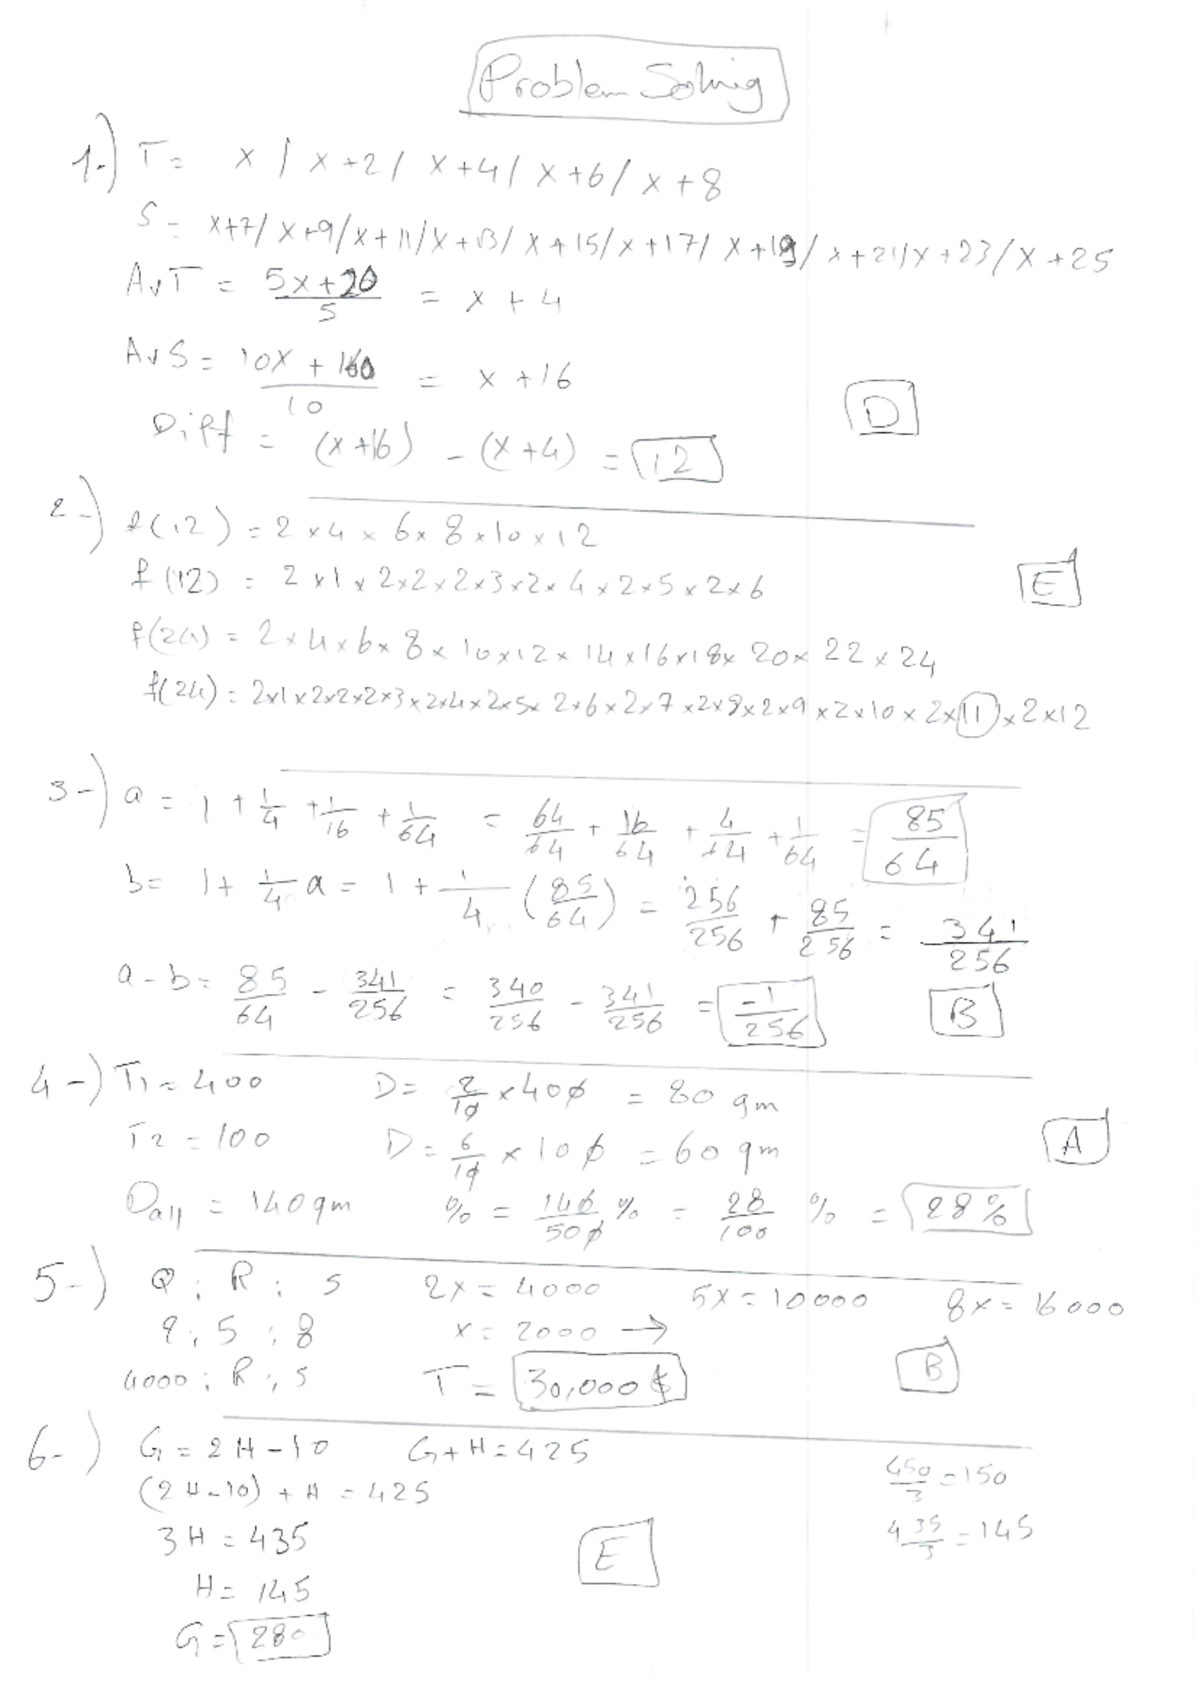 Problem Solving
1-) T = x / x+2 / x+4 / x+6 / x+8
S = x+7/ x+9/x+11/x+13/ x+15/x+17/ x+19/x+21/x+23/x+25
AvT = 5x+20/5 = x+4
AvS = 10x+160/10 = x+16
D
Diff = (x+16) - (x+4) = 12
2-) f(12) = 2x4x6x8x10x12
f(12) = 2x1x2x2x2x3x2x4x2x5x2x6
E
f(24) = 2x4x6x8x10x12x14x16x18x20x22x24
f(24) = 2x1x2x2x2x3x2x4x2x5x2x6x2x7x2x8x2x9x2x10x2x11x2x12
3-) a = 1 + 1/4 + 1/16 + 1/64 = 64/64 + 16/64 + 4/64 + 1/64 = 85/64
b = 1 + 1/4 a = 1 + 1/4 (85/64) = 256/256 + 85/256 = 341/256
a-b = 85/64 - 341/256 = 340/256 - 341/256 = -1/256
B
4-) T1 = 400 D = 2/10 x 400 = 80 gm
T2 = 100 D = 6/10 x 100 = 60 gm
A
Dall = 140gm % = 140/500 % = 28/100 % = 28%
5-) Q : R : S 2x = 4000 5x = 10000 8x = 16000
2 : 5 : 8 x = 2000 →
4000 : R : S T = 30,000 $
B
6-) G = 2H-10 G+H = 425
(2H-10) + H = 425
450/3 = 150
3H = 435
435/3 = 145
E
H = 145
G = 280